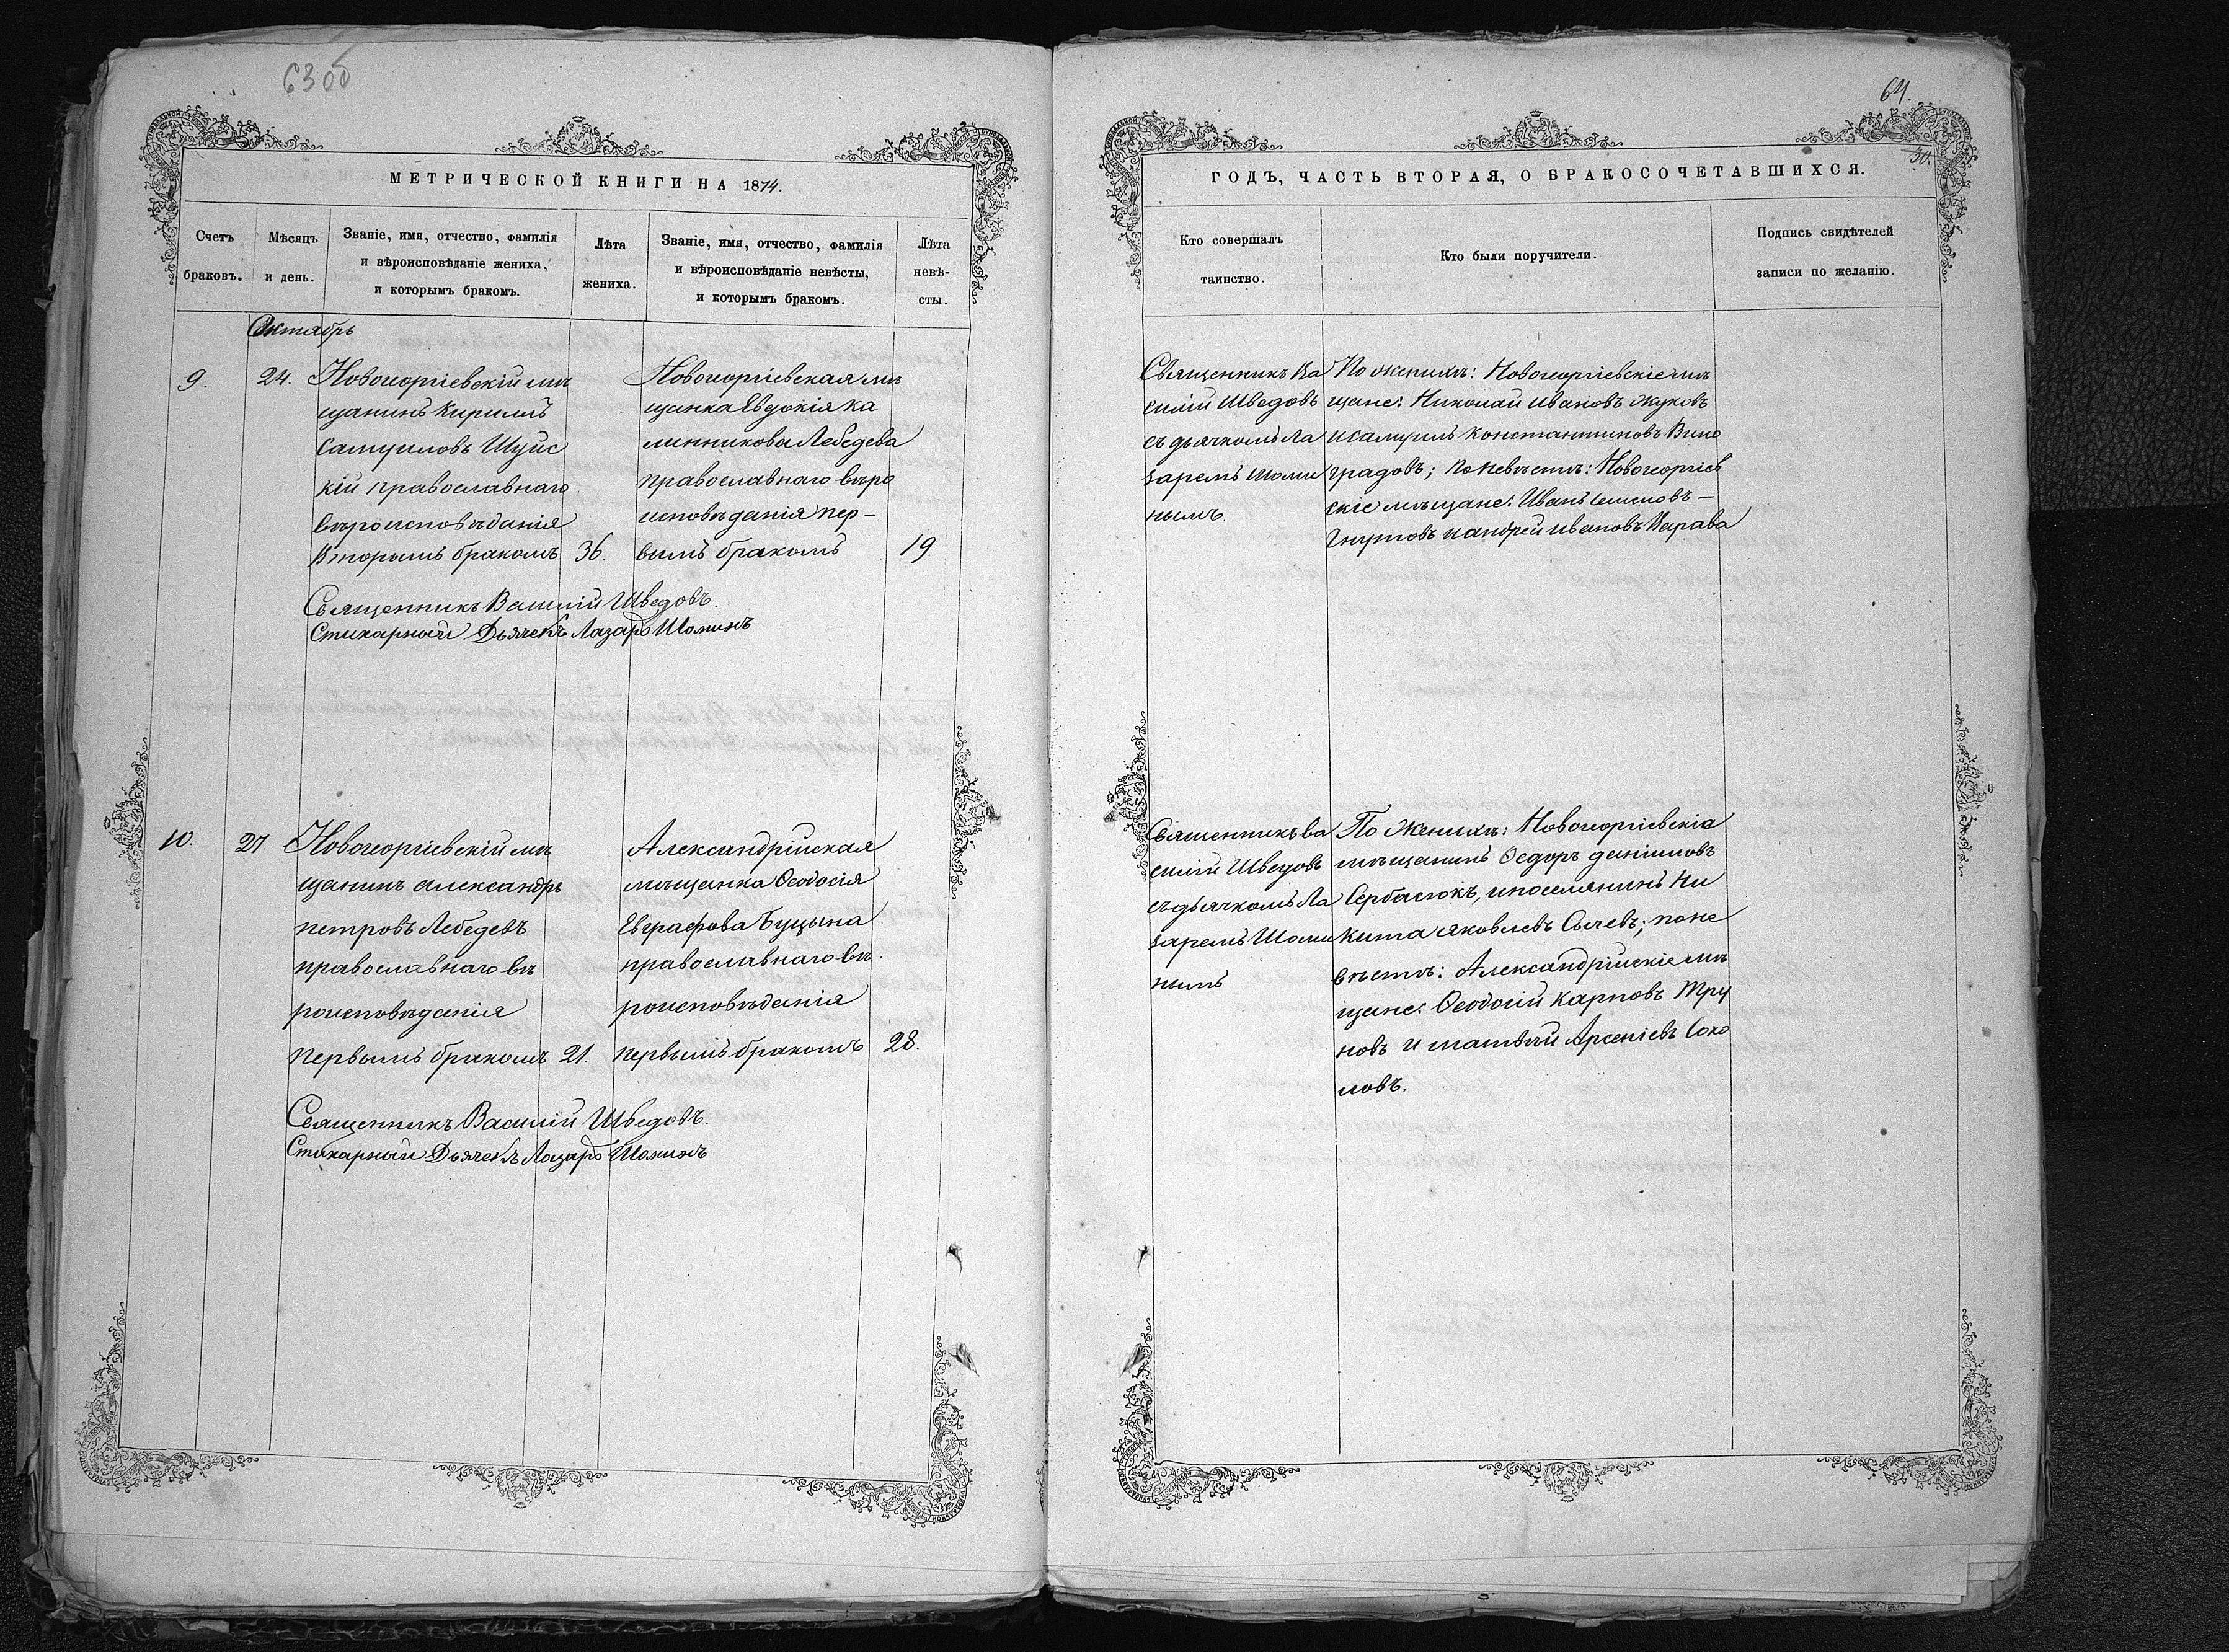 63 об
МЕТРИЧЕСКОЙ КНИГИ НА 1874.
Счетъ браковъ.
Мѣсяцъ и день.
Званіе, имя, отчество, фамилія и вѣроисповѣданіе жениха, и которымъ бракомъ.
Лѣта жениха.
Званіе, имя, отчество, фамилія и вѣроисповѣданіе невѣсты, и которымъ бракомъ.
Лѣта невѣ-
сты.
Октябрь
9.
24.
Новогеоргіевскій мѣ
щанинъ Кириллъ
Самуиловъ Шуйс
кій православнаго
вѣроисповѣданія
Вторымъ бракомъ
36.
Новогеоргіевская мѣ
щанка Евдокія Ка
линникова Лебедева
православнаго вѣро
исповѣданія пер-
вымъ бракомъ
19.
Священникъ Василій Шведовъ.
Стихарный Дьячекъ Лазарь Шоминъ
10.
27
Новогеоргіевскій мѣ
щанинъ Александръ
Петровъ Лебедевъ
православнаго вѣ
роисповѣданія
Первымъ бракомъ
21.
Александрійская
мѣщанка Ѳеодосія
Евграфова Буцына
православнаго вѣ
роисповѣданія
первымъ бракомъ
28.
Священникъ Василій Шведовъ.
Стихарный Дьячекъ Лазарь Шоминъ
64.
30.
ГОДЪ, ЧАСТЬ ВТОРАЯ, О БРАКОСОЧЕТАВШИХСЯ.
Кто совершалъ
таинство.
Кто были поручители.
Подпись свидѣтелей
записи по желанію.
Священникъ Ва
силій Шведовъ
съ дьячкомъ Ла
заремъ Шоми
нымъ.
По женихѣ: Новогеоргіевскіе мѣ
щане: Николай Ивановъ Жуковъ
и Самуилъ Константиновъ Вино
градовъ; по невѣстѣ: Новогеоргіев
скіе мѣщане: Иванъ Семеновъ –
Гнутовъ и Андрей Ивановъ Карава
Священникъ Ва
силій Шведовъ
съ дьячкомъ Ла
заремъ Шоми
нымъ
По Женихѣ: Новогеоргіевскіа
мѣщанинъ Ѳедоръ Даніиловъ
Сербасюкъ, и поселянинъ Ни
кита Яковлевъ Сычевъ; по не
вѣстѣ: Александрійскіе мѣ
щане: Ѳеодосій Карповъ Тру
новъ и Матвѣй Арсеніевъ Соко
ловъ.